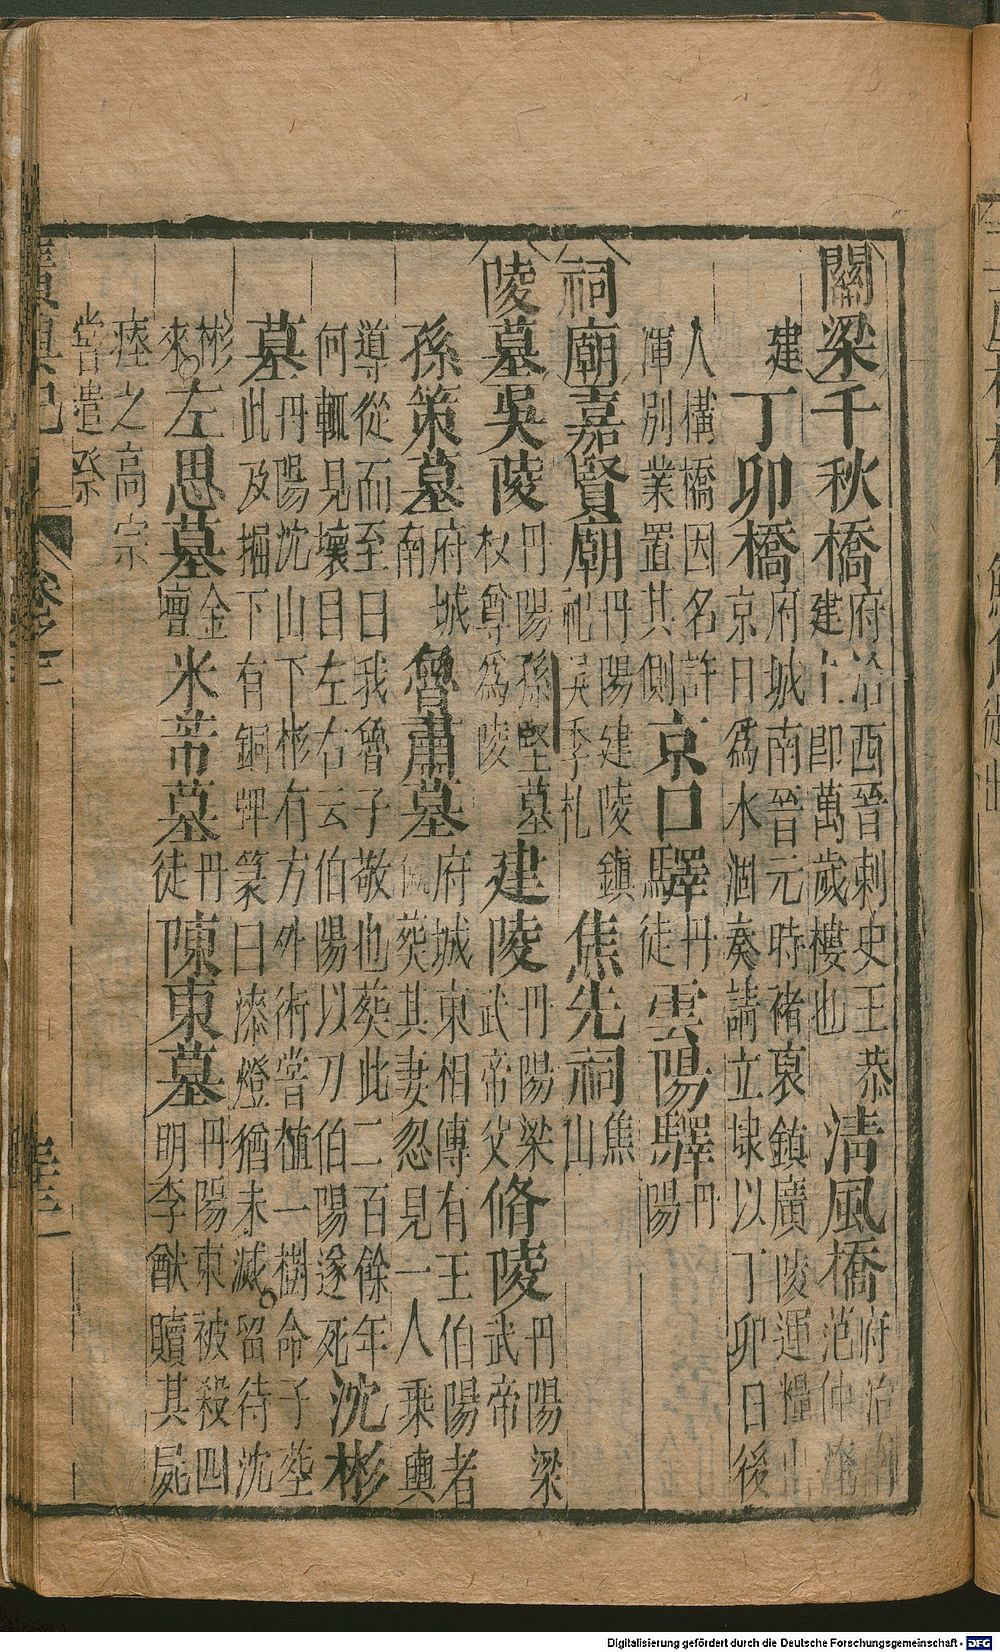 關梁千秋橋府治西晉刺史王恭建上即萬歲樓也清風橋府治南范仲淹
建丁卯橋府城南晉元時褚裒鎮廣陵運糧出京日爲水涸奏請立埭以丁卯日後
人構橋因名許渾別業置其側京口驛丹徒雲陽驛丹陽
祠廟嘉賢廟丹陽建陵鎮祀吳季札焦先祠焦山
陵墓吳陵丹陽孫堅墓权尊爲陵建陵丹陽梁武帝父脩陵丹陽梁武帝
孫策墓府城南魯肅墓府城東相傳有王伯陽者葬其妻忽見一人乘輿
導從而至曰我魯子敬也葬此二百餘年何輒見壞目左右云伯陽以刀伯陽遂死沈彬
墓丹陽沈山下彬有方外術嘗植一樹命子塟此及掘下有銅牌篆曰漆燈猶未滅留待沈
彬來左思墓金壇米芾墓丹徒陳東墓丹陽東被殺四明李猷贖其屍
瘞之高宗嘗遣祭
廣輿記 卷之三
Digitalisierung gefördert durch die Deutsche Forschungsgemeinschaft - DFG